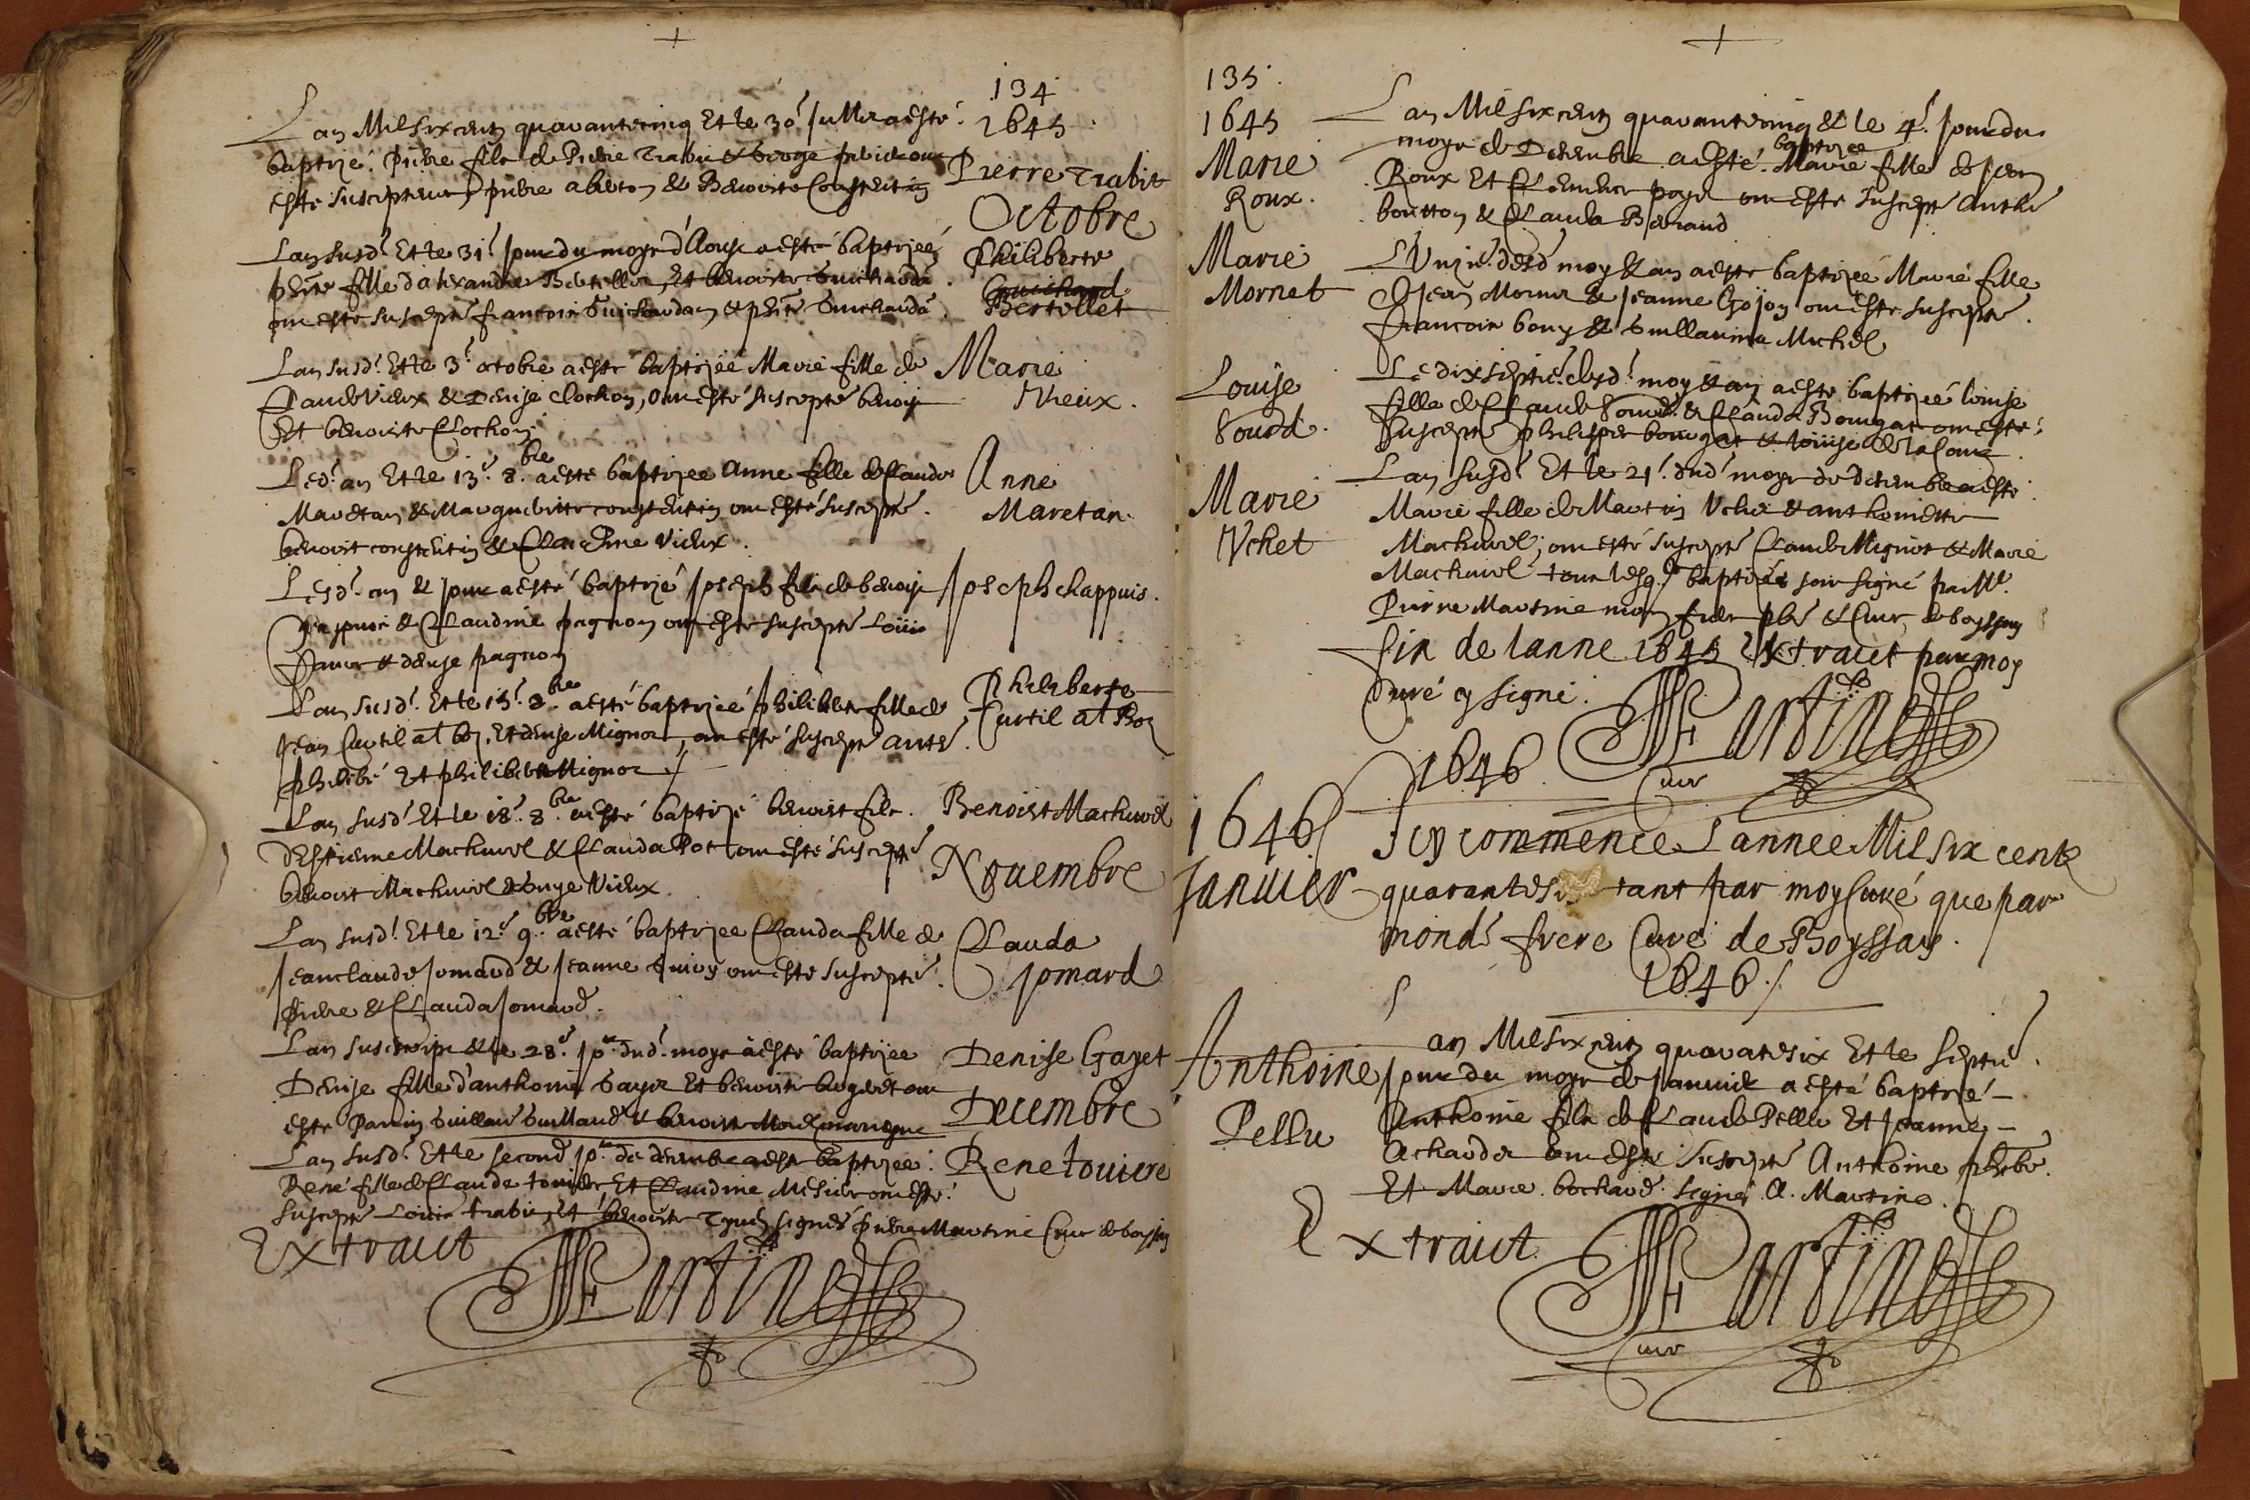 134
1645
Lan Mil six cents quarante cinq Et le 30e Juillet a esté
baptizé Pierre filz de Pierre Trabit &
esté suscepteurs pierre & Benoiste Constentin
Pierre Trabit
Octobre
Lan susd. Et le 31e jour du moys d'Aoust a esté baptizeé
fille d'alexandre Bertollet, Et benoiste Guicharda
ont esté suscepte francois Guichardan & Guicharda
Philiberte
Guichard
Bertollet
Lan susd. Et le 3e octobre a esté baptizeé Marie fille de
Claude Vieux & Denise Clochon, ont esté suscepte benoist
Et benoiste Clochon
Marie
Vieux.
Led. an Et le 13e 8bre a esté baptizee Anne fille de Claude
Maretan & Margueritte constentin ont esté suscepte.
benoist constentin & Claudine Vieux.
Anne
Maretan.
Lesd. an & jour a esté baptizé Joseph filz de benoist
& Claudine pagnon ont esté suscepte Louis
& denise pagnon
Joseph chappuis.
Lan susd. Et le 15e 8bre a esté baptizeé philiberte fille de
Jean Curtil al boz. Et denise Mignot, ont esté suscepte
Et philiberte Mignot
Philiberte
Curtil al Boz
Lan susd. Et le 18e 8bre a esté baptizé benoist filz.
d'Estienne Machuret & Clauda Pot ont esté suscepte
benoist Machuret & Vieux
Benoist Machuret
Novembre
Lan susd. Et le 12e 9bre a esté baptizee Clauda fille de
Jean claude Jomard & Jeanne ont esté suscepte.
pierre & Clauda Jomard.
Clauda
Jomard
Lan susescript & le 28e jr. dud. moys a esté baptizee
Denise fille d'anthoine Gayet Et benoiste ont
esté Parrin Guillaume & benoiste
Denise Gayet
Decembre
Lan susd. Et le second jr. de decembre a esté baptizee.
René fille de Claude touiere Et Claudine ont esté
suscepte Louis trabit, Et benoiste signés pierre Martine Curé de boyssay
Rene touiere
Extraict
Martine
135.
1645
Lan Mil six cents quarante cinq & le 4e. jour du
moys de Decembre a esté baptizee Marie fille de Jean
Roux Et ont esté suscepte Anthe
boutton & Clauda Berraud
Marie
Roux.
desd moy & an a esté baptizeé Marie fille
de Jean Mornet & Jeanne Gojon ont esté suscepte.
francois bony & Guillauma Michel
Marie
Mornet
Le dix septie. desd. moy & an a esté baptizeé Louise
fille de Claude Sourd & Clauda Bourgat ont esté
suscepte philipes bourgat & Louise de la
Louise
Sourd.
Lan susd. Et le 21e. dud. moys de decembre a esté
Marie fille de Martin Vchet & anthoinette
Machuret, ont esté suscepte Claude Mignot & Marie
Machuret tour lesq. baptizés sont signé par Mr.
Pierre Martine mon frere pbre & Curé de boyssay
Marie
Vchet
fin de lanne 1645 Extraict par moy
Curé sy signé.
Martine
Curé
1646
1646
Janvier
Icy commence Lannee Mil six cents
quarante six tant par moy Curé que par
mond. frere Curé de Boyssay.
1646
Lan Mil six cents quarate six Et le septie.
jour du moys de Janvier a esté baptizé
Anthoine filz de Claude Pellu Et Jeanne
ont esté suscepte Anthoine
Et Marie bochard. signé A. Martine.
Anthoine
Pellu
Extraict
Martine
Curé